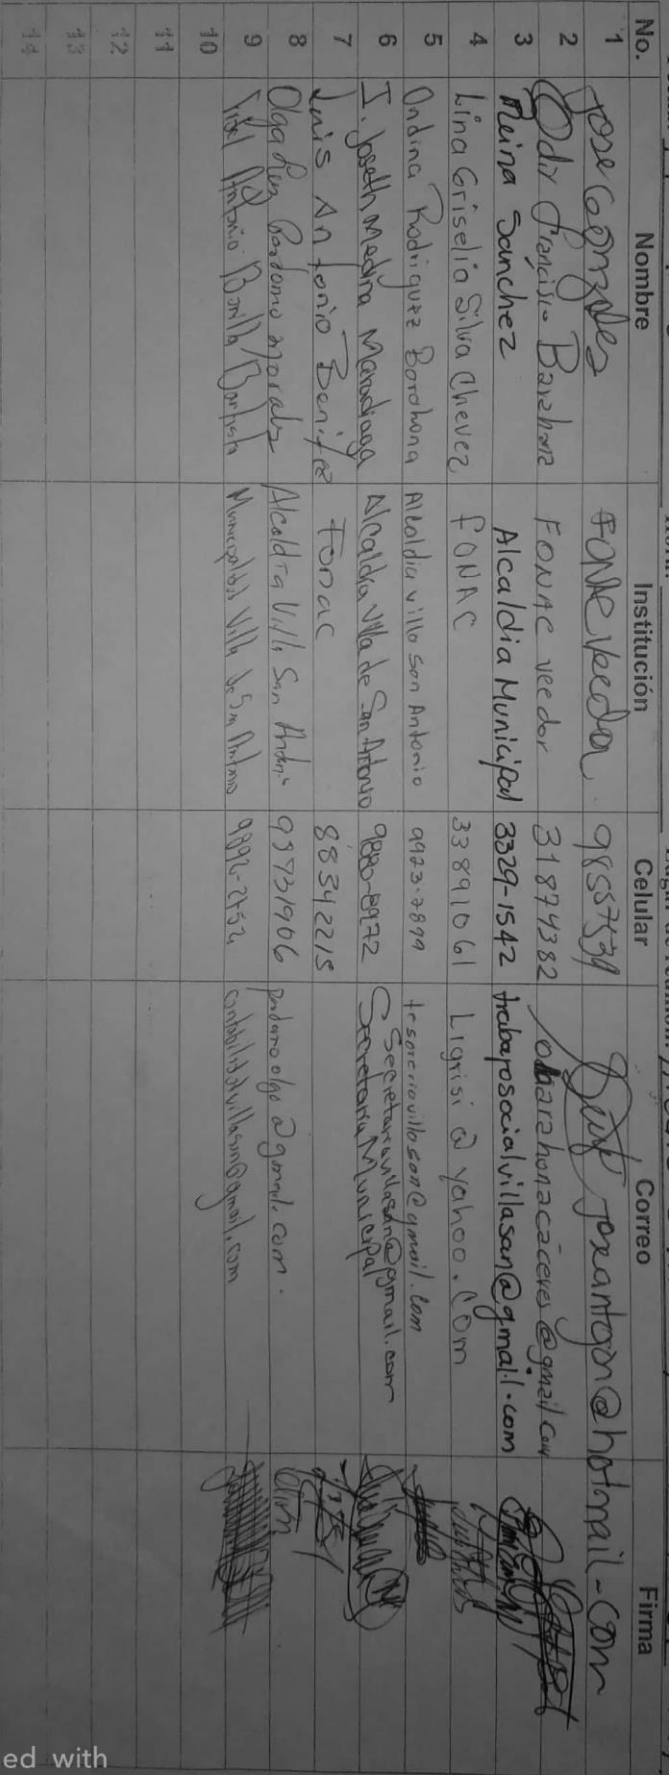 No. Nombre Institución Celular Correo Firma
1 Jose Gonzales FONAC Veedor 98557539 joseantgon@hotmail.com
2 Odir Francisco Barahona FONAC veedor 31879382 obarahonacaceres@gmail.com
3 Reina Sanchez Alcaldia Municipal 3329-1542 trabajosocialvillasan@gmail.com
4 Lina Griselia Silva Chevez FONAC 33891061 Ligrisi@yahoo.com
5 Ondina Rodriguez Barahona Alcaldia villa san Antonio 9923-7899 tesoreriavillasan@gmail.com
6 I. Joseth Medina Maradiaga Alcaldia Villa de San Antonio 9880-8972 Secretariavillasan@gmail.com
Secretaria Municipal
7 Luis Antonio Benitez Fonac 88342215
8 Olga Luz Perdomo Morales Alcaldia Villa San Antonio 95731906 perdomoolga@gmail.com.
9 Fidel Antonio Bonilla Bautista Municipalidad Villa de San Antonio 9892-2752 contabilidadvillasan@gmail.com
10
11
12
13
14
ed with